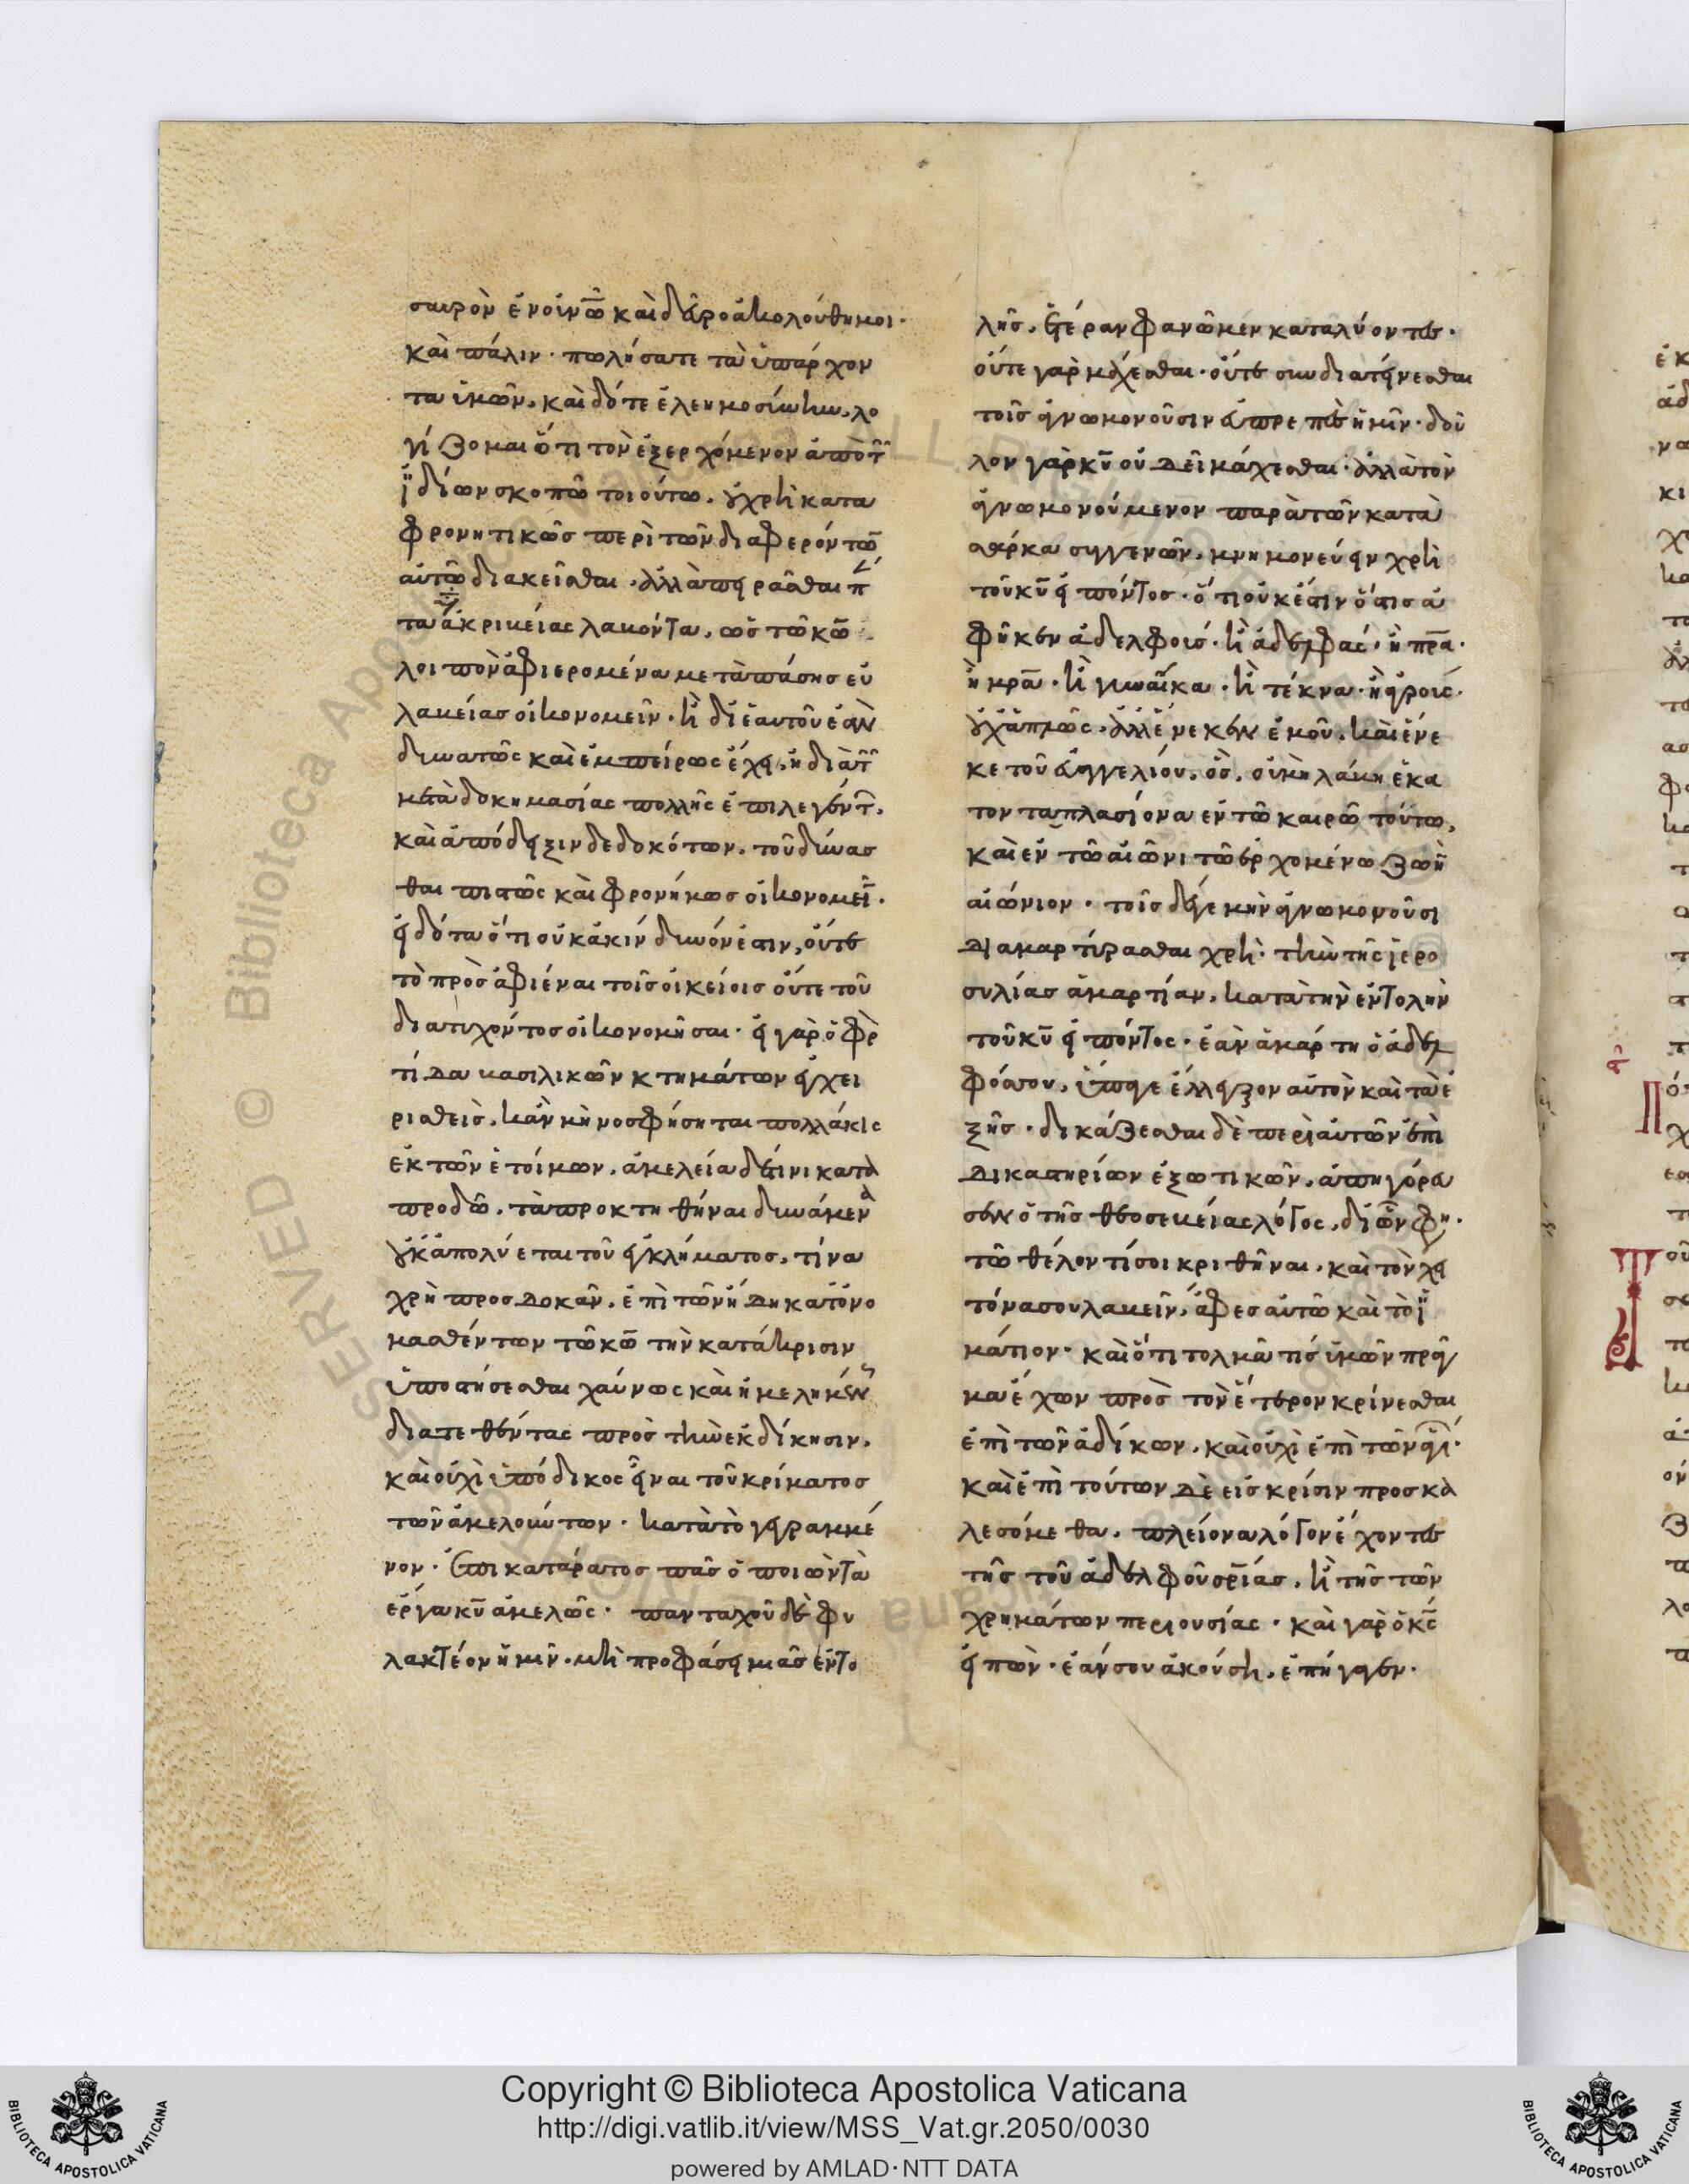 σαυρὸν ἐν οὐνῶ καὶ δεῦρο ἀκολούθη μοι·
καὶ πάλιν· πωλήσατε τὰ ὑπάρχον
τα ὑμῶν, καὶ δότε ἐλεημοσύνην, λο
γίζομαι ὅτι τὸν ἐξερχόμενον ἀπὸ τ
ἰδίων σκοπῶ τοιούτω, οὐ χρὴ κατα
φρονητικῶς περὶ τῶν διαφερόντων
αὐτῶ διακεῖσθαι, ἀλλὰ πειρᾶσθαι π
τα ἀκριβείας λαβόντα, ὡς τῶ κῶ
λοιπὸν ἀφιερομένα μετὰ πάσης εὐ
λαβείας οἰκονομεῖν· ἢ δι' ἑαυτοῦ ἐὰν
δυνατῶς καὶ ἐμπείρως ἔχει, ἢ διὰ τ
μετὰ δοκημασίας πολλῆς ἐπιλεγέντ,
καὶ ἀπόδειξιν δεδοκότων, τοῦ δύνασ
θαι πιστῶς καὶ φρονήμως οἰκονομεῖ·
εἰδότα ὅτι οὐκ ἀκίνδυνόν ἐστιν, οὔτε
τὸ πρὸς ἀφιέναι τοῖς οἰκείοις οὔτε τοῦ
διατυχόντος οἰκονομῆσαι· εἰ γὰρ ὁ φρ
τίδα βασιλικῶν κτημάτων ἐγχει
ρισθεὶς, κἂν μὴ νοσφήσηται πολλάκις
ἐκ τῶν ἑτοίμων, ἀμελεία δέ τινι κατα
προδῶ, τὰ προκτηθῆναι δυνάμενα
οὐκ ἀπολύεται τοῦ ἐγκλήματος, τίνα
χρὴ προσδοκᾶν, ἐπὶ τῶν ἤδη κατ' ὄνο
μασθέντων τῶ κῶ τὴν κατάκρισιν
ὑποστήσεσθαι χαύνως καὶ ἠμελημένως
διατεθέντας πρὸς τὴν ἐκδίκησιν,
καὶ οὐχὶ ὑπόδικος εἶναι τοῦ κρίματος
τῶν ἀμελούντων· κατὰ τὸ γεγραμμέ
νον· ἐπικατάρατος πᾶς ὁ ποιῶν τὰ
ἔργα κῦ ἀμελῶς· πανταχοῦ δὲ φυ
λακτέον ἡμῖν, μὴ προφάσει μιᾶς ἐντο
λῆς, ἑτέραν φανῶμεν καταλύοντες·
οὔτε γὰρ μάχεσθαι· οὔτε συνδιατείνεσθαι
τοῖς ἀγνωμονοῦσιν εὐπρεπὲς ἡμῖν· δοῦ
λον γὰρ κῦ οὐ δεῖ μάχεσθαι· ἀλλὰ τὸν
ἀγνωμονούμενον παρὰ τῶν κατὰ
σάρκα συγγενῶν, μνημονεύειν χρὴ
τοῦ κῦ εἰπόντος· ὅτι οὐκ ἔστιν ὅστις ἀ
φῆκεν ἀδελφοὺς· ἢ ἀδελφὰς· ἢ πρα·
ἢ μρα· ἢ γυναῖκα· ἢ τέκνα· ἢ ἀγρούς·
οὐχ ἁπλῶς, ἀλλ' ἕνεκεν ἐμοῦ, καὶ ἕνε
κε τοῦ εὐαγγελίου, ὃς, οὐ μὴ λάβη ἑκα
τονταπλασίονα ἐν τῶ καιρῶ τούτω,
καὶ ἐν τῶ αἰῶνι τῶ ἐρχομένω ζωὴν
αἰώνιον· τοῖς δέ γε μὴν ἀγνωμονοῦσι
διαμαρτύρασθαι χρὴ· τὴν τῆς ἱερο
συλίας ἁμαρτίαν, κατὰ τὴν ἐντολὴν
τοῦ κῦ εἰπόντος· ἐὰν ἁμάρτη ὁ ἀδελ
φός σου, ὕπαγε ἔλλεγξον αὐτὸν καὶ τὰ ἑ
ξῆς· δικάζεσθαι δὲ περὶ αὐτῶν ἐπὶ
δικαστηρίων ἐξωτικῶν, ἀπηγόρευ
σεν ὁ τῆς θεοσεβείας λόγος, δι' ὧν φη·
τῶ θέλοντί σοι κριθῆναι, καὶ τὸν χι
τόνα σου λαβεῖν, ἄφες αὐτῶ καὶ τὸ ἱ
μάτιον· καὶ ὅτι τολμᾶ τις ὑμῶν πρᾶγ
μα ἔχων πρὸς τὸν ἕτερον κρίνεσθαι
ἐπὶ τῶν ἀδίκων, καὶ οὐχὶ ἐπὶ τῶν ἁγί·
καὶ ἐπὶ τούτων δὲ εἰς κρίσιν προσκα
λεσόμεθα, πλείονα λόγον ἔχοντες
τῆς τοῦ ἀδελφοῦ σρίας, ἢ τῆς τῶν
χρημάτων περιουσίας· καὶ γὰρ ὁ κς
εἰπὼν· ἐάν σου ἀκούση, ἐπήγαγεν·
Copyright © Biblioteca Apostolica Vaticana
http://digi.vatlib.it/view/MSS_Vat.gr.2050/0030
powered by AMLAD·NTT DATA
BIBLIOTECA APOSTOLICA VATICANA
BIBLIOTECA APOSTOLICA VATICANA